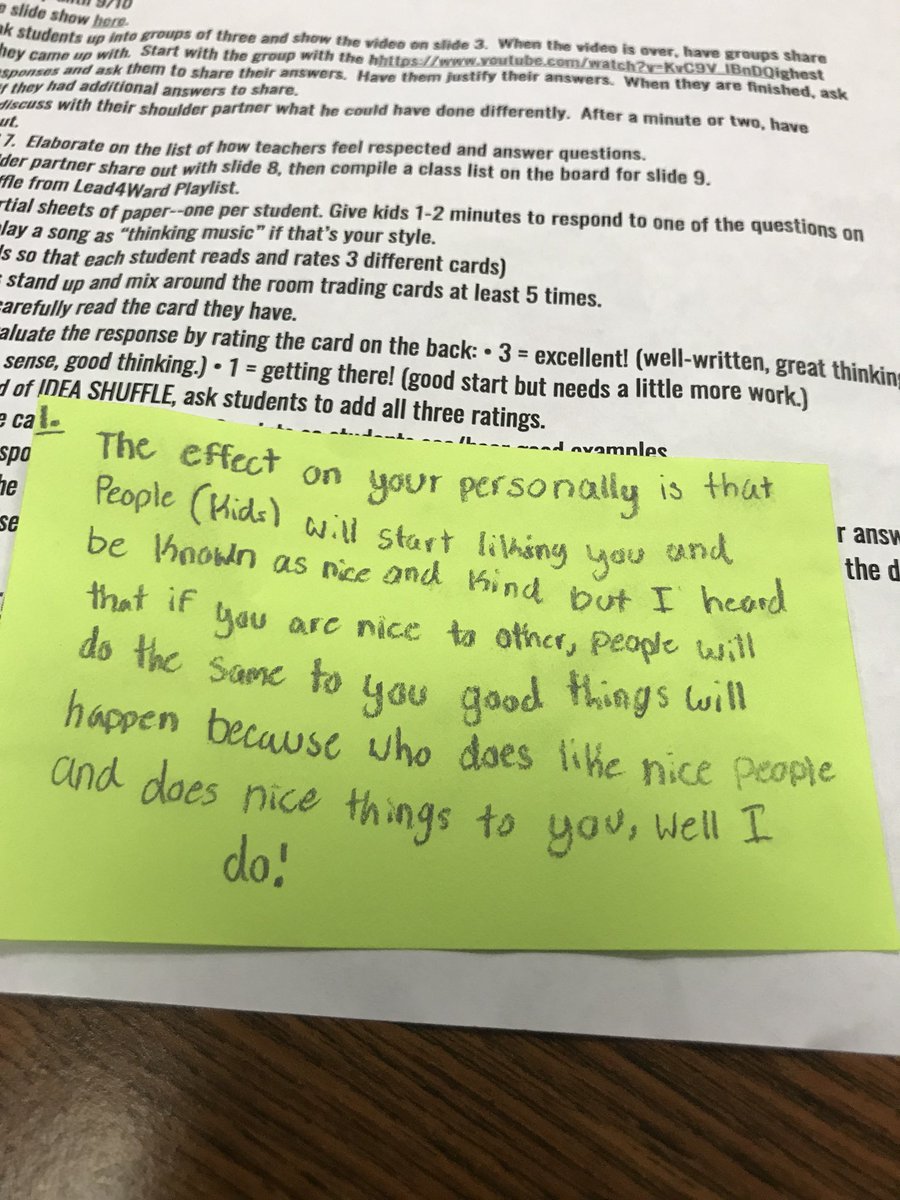 slide show here.
students up into groups of three and show the video on slide 3. When the video is over, have groups share
hey came up with. Start with the group with the hhttps://www.youtube.com/watch?v=KvC9V_IBnDQighest
sponses and ask them to share their answers. Have them justify their answers. When they are finished, ask
f they had additional answers to share.
discuss with their shoulder partner what he could have done differently. After a minute or two, have
ut.
7. Elaborate on the list of how teachers feel respected and answer questions.
der partner share out with slide 8, then compile a class list on the board for slide 9.
ffle from Lead4Ward Playlist.
rtial sheets of paper--one per student. Give kids 1-2 minutes to respond to one of the questions on
lay a song as “thinking music” if that’s your style.
ls so that each student reads and rates 3 different cards)
stand up and mix around the room trading cards at least 5 times.
carefully read the card they have.
aluate the response by rating the card on the back: • 3 = excellent! (well-written, great thinking
sense, good thinking.) • 1 = getting there! (good start but needs a little more work.)
d of IDEA SHUFFLE, ask students to add all three ratings.
e ca
good examples
spo
he
se
r answ
the d
1.
The effect on your personally is that
People (Kids) will start liking you and
be known as nice and kind but I heard
that if you are nice to other, people will
do the same to you good things will
happen because who does like nice people
and does nice things to you, Well I
do!